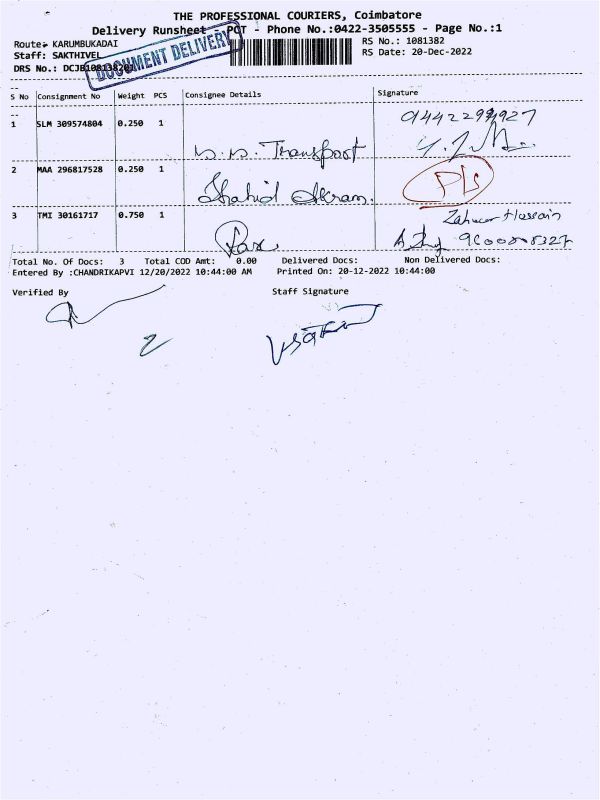 THE PROFESSIONAL COURIERS, Coimbatore
Delivery Runsheet - PCT - Phone No.:0422-3505555 - Page No.:1
Route:- KARUMBUKADAI
RS No.: 1081382
Staff: SAKTHIVEL
RS Date: 20-Dec-2022
DRS No.: DCJB108138201
DOCUMENT DELIVERY
S No Consignment No Weight PCS Consignee Details Signature
1 SLM 309574804 0.250 1 Transport
2 MAA 296817528 0.250 1 Shahid Akram.
3 TMI 30161717 0.750 1 Zaheer Hussain
Total No. Of Docs: 3 Total COD Amt: 0.00 Delivered Docs: Non Delivered Docs:
Entered By :CHANDRIKAPVI 12/20/2022 10:44:00 AM Printed On: 20-12-2022 10:44:00
Verified By Staff Signature